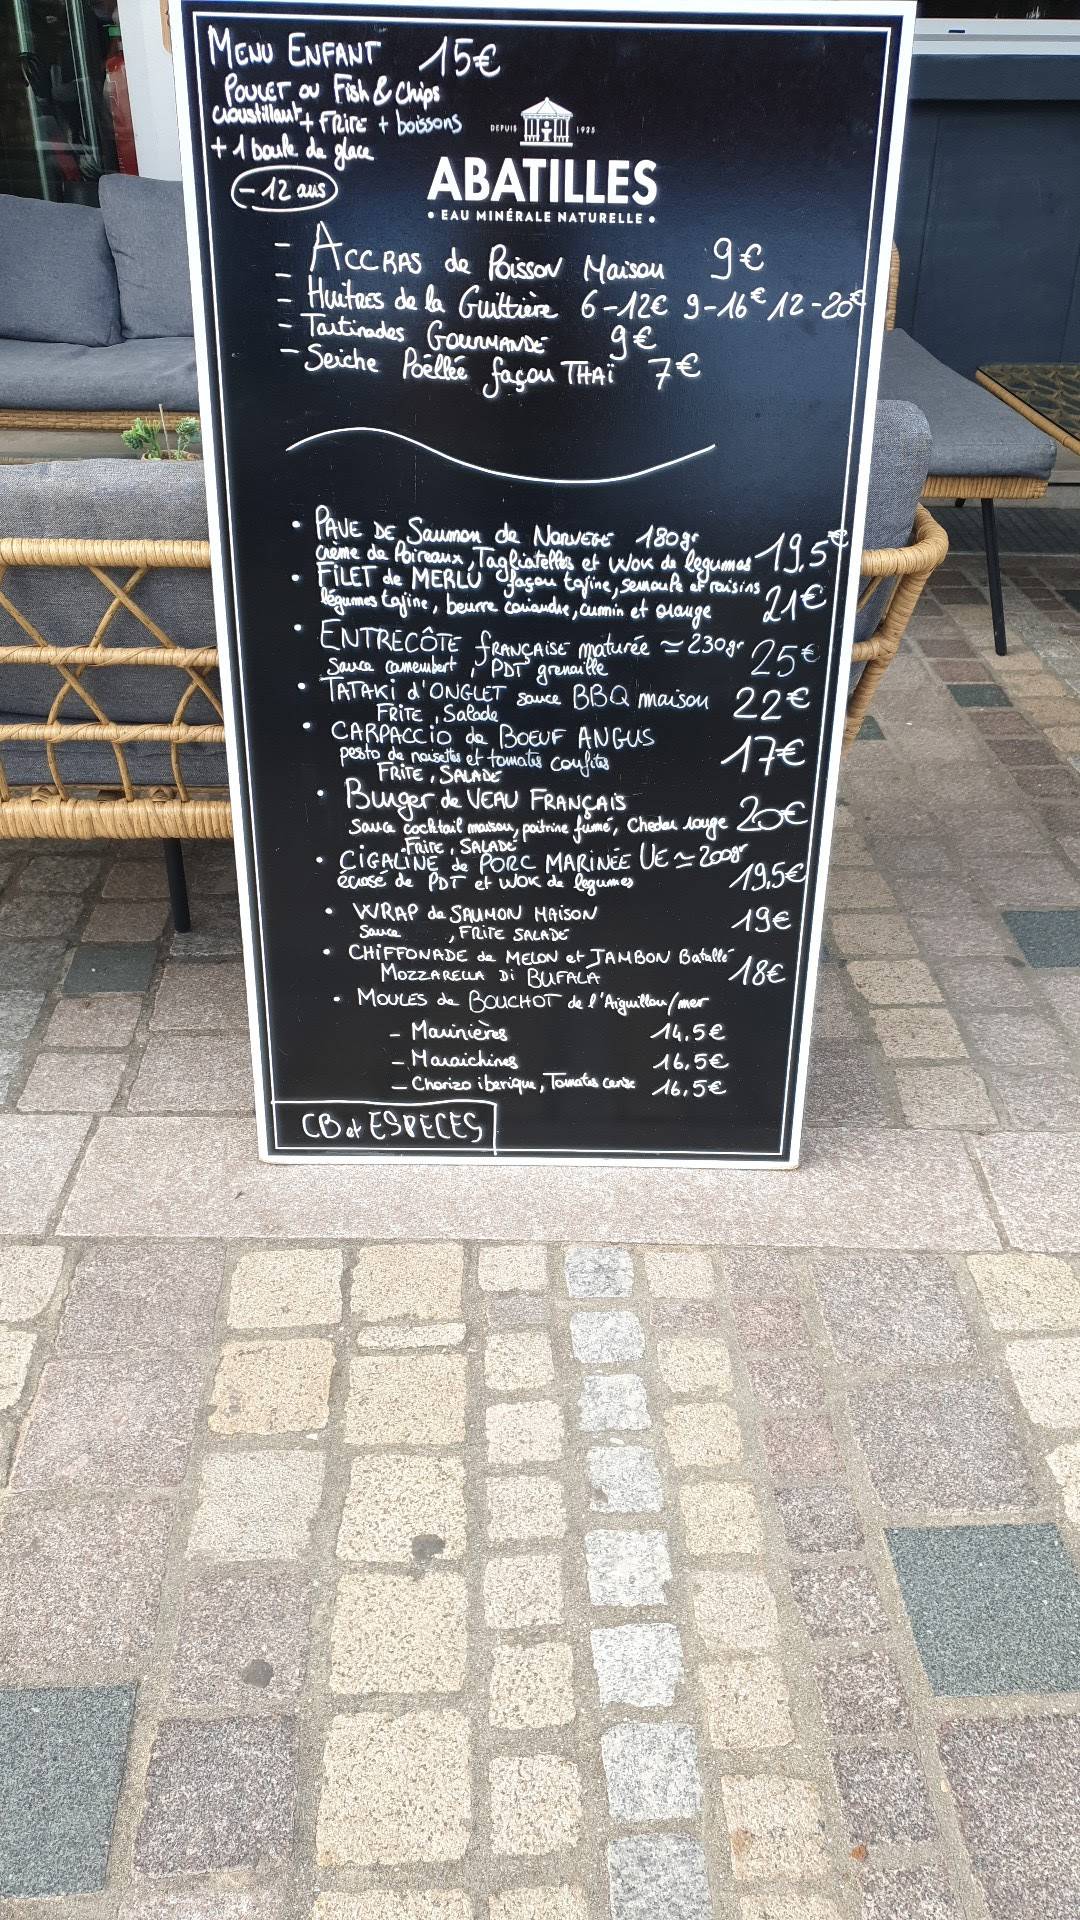 MENU ENFANT 15€
POULET ou Fish & Chips
croustillant + FRITE + boissons
+ 1 boule de glace
- 12 ans
DEPUIS 1925
ABATILLES
• EAU MINÉRALE NATURELLE •
- ACCRAS de Poisson Maison 9€
- Huîtres de la Guittière 6-12€ 9-16€ 12-20€
- Tartinades GOURMANDE 9€
- Seiche Poêllée façon THAÏ 7€
• PAVE DE Saumon de NORVEGE 180gr 19,5€
crème de Poireaux, Tagliatelles et wok de legumes
• FILET de MERLU façon tajine, semoule et raisins 21€
légumes tajine, beurre coriandre, cumin et orange
• ENTRECÔTE FRANÇAISE maturée ≃ 230gr 25€
Sauce camembert, PDT grenaille
• TATAKI d'ONGLET sauce BBQ maison 22€
FRITE, Salade
• CARPACCIO de BOEUF ANGUS 17€
pesto de noisettes et tomates confites
FRITE, SALADE
• Burger de VEAU FRANÇAIS 20€
Sauce cocktail maison, poitrine fumé, Chedar rouge
FRITE, SALADE
• CIGALINE de PORC MARINÉE UE ≃ 200gr 19,5€
écrasé de PDT et WOK de legumes
• WRAP de SAUMON MAISON 19€
Sauce , FRITE SALADE
• CHIFFONADE de MELON et JAMBON Batallé 18€
MOZZARELLA Di BUFALA
• MOULES de BOUCHOT de l'Aiguillon/mer
- Marinières 14,5€
- Maraichines 16,5€
- Chorizo iberique, Tomates cerise 16,5€
CB et ESPECES